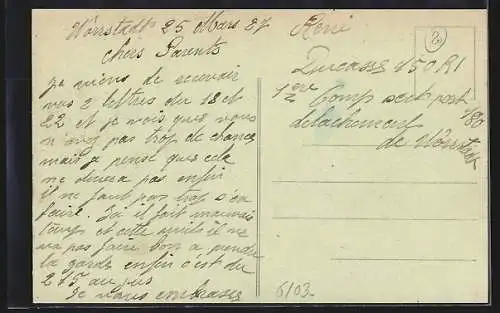 Wörrstadt 25 Mars 27
chers Parents
je viens de recevoir
vos 2 lettres du 18 et
22 et je vois que vous
n'avez pas trop de chance
mais je pense que cela
ne durera pas enfin
il ne faut pas trop s'en
faire. Ici il fait mauvais
temps et cette nuit il ne
va pas faire bon a prendre
la garde enfin c'est du
275 au jus
Je vous embrasse
René
Ducasse 150 RI
1ère Comp sect post 180
détachement
de Wörrstadt
20
6103